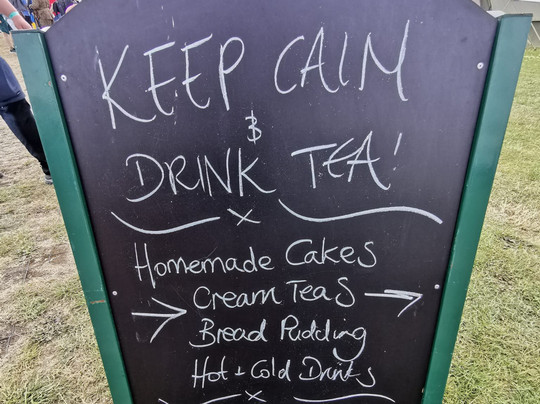 KEEP CALM
&
DRINK TEA!
Homemade Cakes
Cream Teas
Bread Pudding
Hot + Cold Drinks